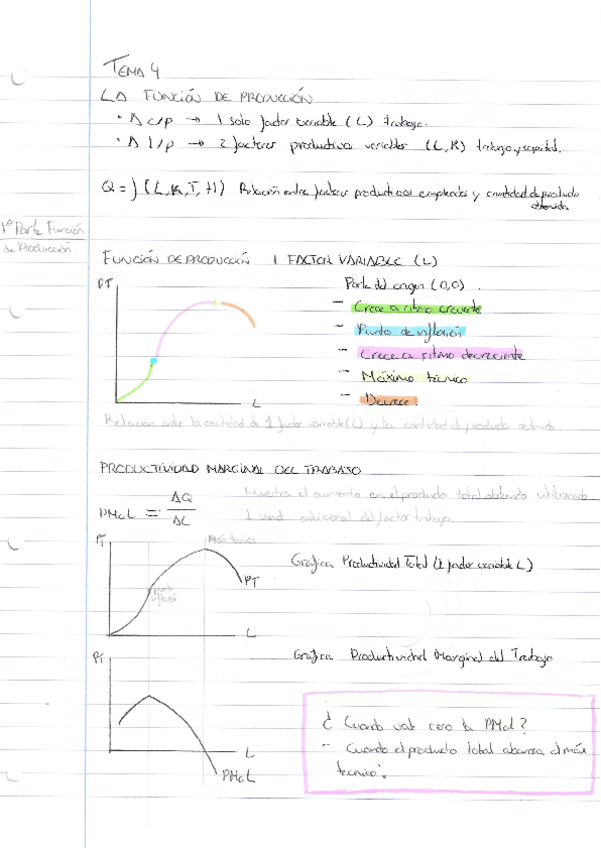 TEMA 4
LA FUNCIÓN DE PRODUCCIÓN
· A c/p → 1 solo factor variable (L) trabajo.
· A l/p → 2 factores productivos variables (L, K) trabajo y capital.
Q = f (L, K, T, H) Relación entre factores productivos empleados y cantidad de producto
obtenida
1º Parte Función
de Producción.
FUNCIÓN DE PRODUCCIÓN 1 FACTOR VARIABLE (L)
PT
Parte del origen (0,0).
- Crece a ritmo creciente
- Punto de inflexión
- Crece a ritmo decreciente
- Máximo técnico
- Decrece.
L
Relación entre la cantidad de 1 factor variable (L) y la cantidad de producto obtenida.
PRODUCTIVIDAD MARGINAL DEL TRABAJO
PMaL = ΔQ / ΔL
Muestra el aumento en el producto total obtenido utilizando
1 unid adicional del factor trabajo.
PT
Máx técnico
Gráfica Productividad Total (1 factor variable L)
PT
punto
inflexió
L
PT
Gráfica Productividad Marginal del Trabajo
¿Cuando vale cero la PMaL?
- Cuando el producto total alcanza el máx
técnico.
L
PMaL